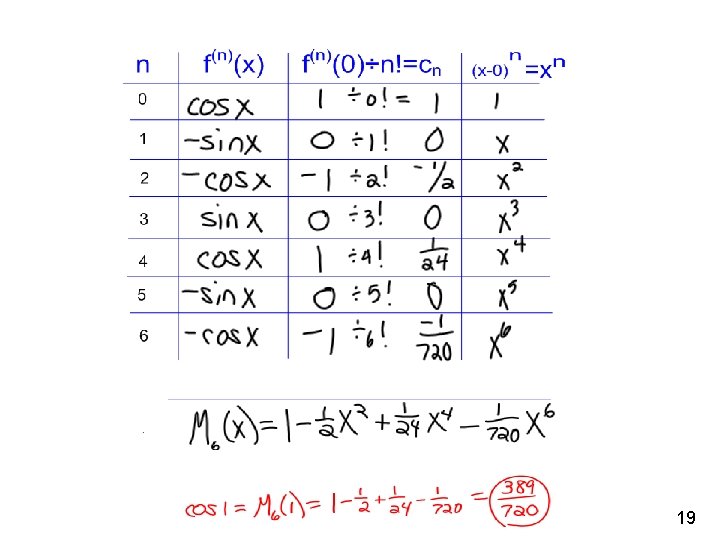 n f⁽ⁿ⁾(x) f⁽ⁿ⁾(0)÷n!=cₙ (x-0)ⁿ=xⁿ
0 cosx 1 ÷0! = 1 1
1 -sinx 0 ÷1! 0 x
2 -cosx -1 ÷2! -1/2 x²
3 sinx 0 ÷3! 0 x³
4 cosx 1 ÷4! 1/24 x⁴
5 -sinx 0 ÷5! 0 x⁵
6 -cosx -1 ÷6! -1/720 x⁶
M₆(x)=1-1/2x²+1/24x⁴-1/720x⁶
cos1=M₆(1)=1-1/2+1/24-1/720=389/720
19